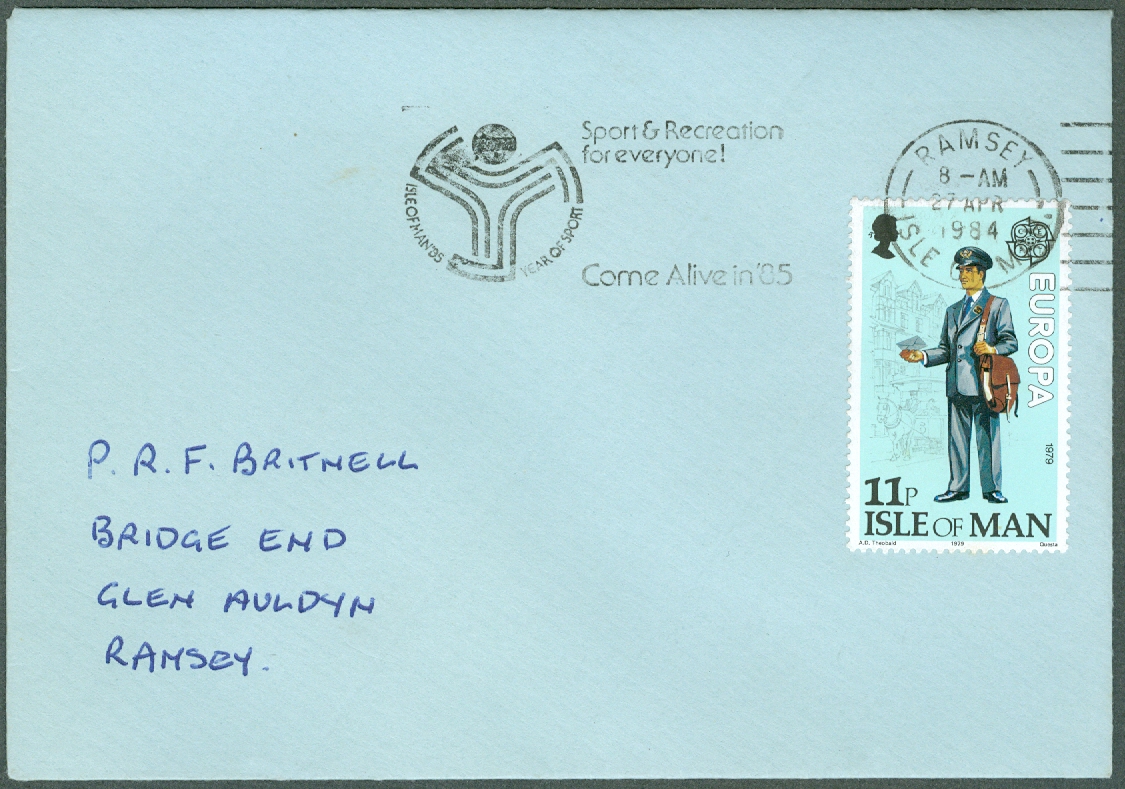 Sport & Recreation
for everyone!
ISLE OF MAN '85
YEAR OF SPORT
Come Alive in '85
RAMSEY
8 - AM
27 APR
1984
ISLE
M
EUROPA
1979
11P
ISLE OF MAN
A.D. Theobald 1979 Questa
P. R. F. BRITNELL
BRIDGE END
GLEN AULDYN
RAMSEY.